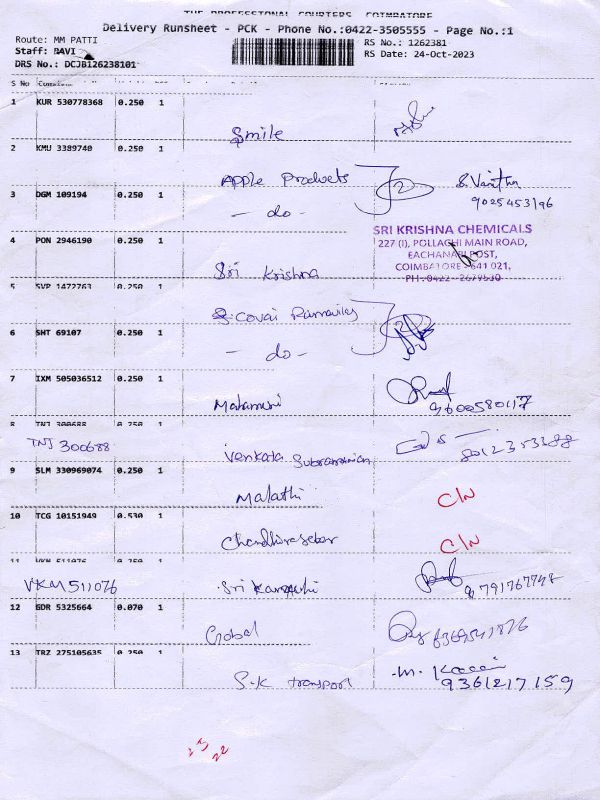 THE PROFESSIONAL COURIERS, COIMBATORE
Delivery Runsheet - PCK - Phone No.:0422-3505555 - Page No.:1
Route: MM PATTI
Staff: BAVI
DRS No.: DCJB126238101
RS No.: 1262381
RS Date: 24-Oct-2023
S No
1 KUR 530778368 0.250 1
Smile
2 KMU 3389740 0.250 1
Apple Products 2 S. Vanitha
9025453196
3 DGM 109194 0.250 1
- do -
SRI KRISHNA CHEMICALS
227 (I), POLLACHI MAIN ROAD,
EACHANARI POST,
COIMBATORE - 641 021.
PH : 0422 - 2679530
4 PON 2946190 0.250 1
Sri Krishna
5 SVP 1472763 0.250 1
Covai
6 SHT 69107 0.250 1
- do -
7 IXM 505036512 0.250 1
9600580117
8 TNJ 300688 0.250 1
TNJ 300688
Venkata Subramanian 8012353288
9 SLM 330969074 0.250 1
Malathi C/N
10 TCG 10151949 0.530 1
Chandhrasekar C/N
11 VKM 511076 0.250 1
VKM 511076
Sri 9791767748
12 GDR 5325664 0.070 1
Gobal 6369541826
13 TRZ 275105635 0.250 1
S.K transport M.
9361217159